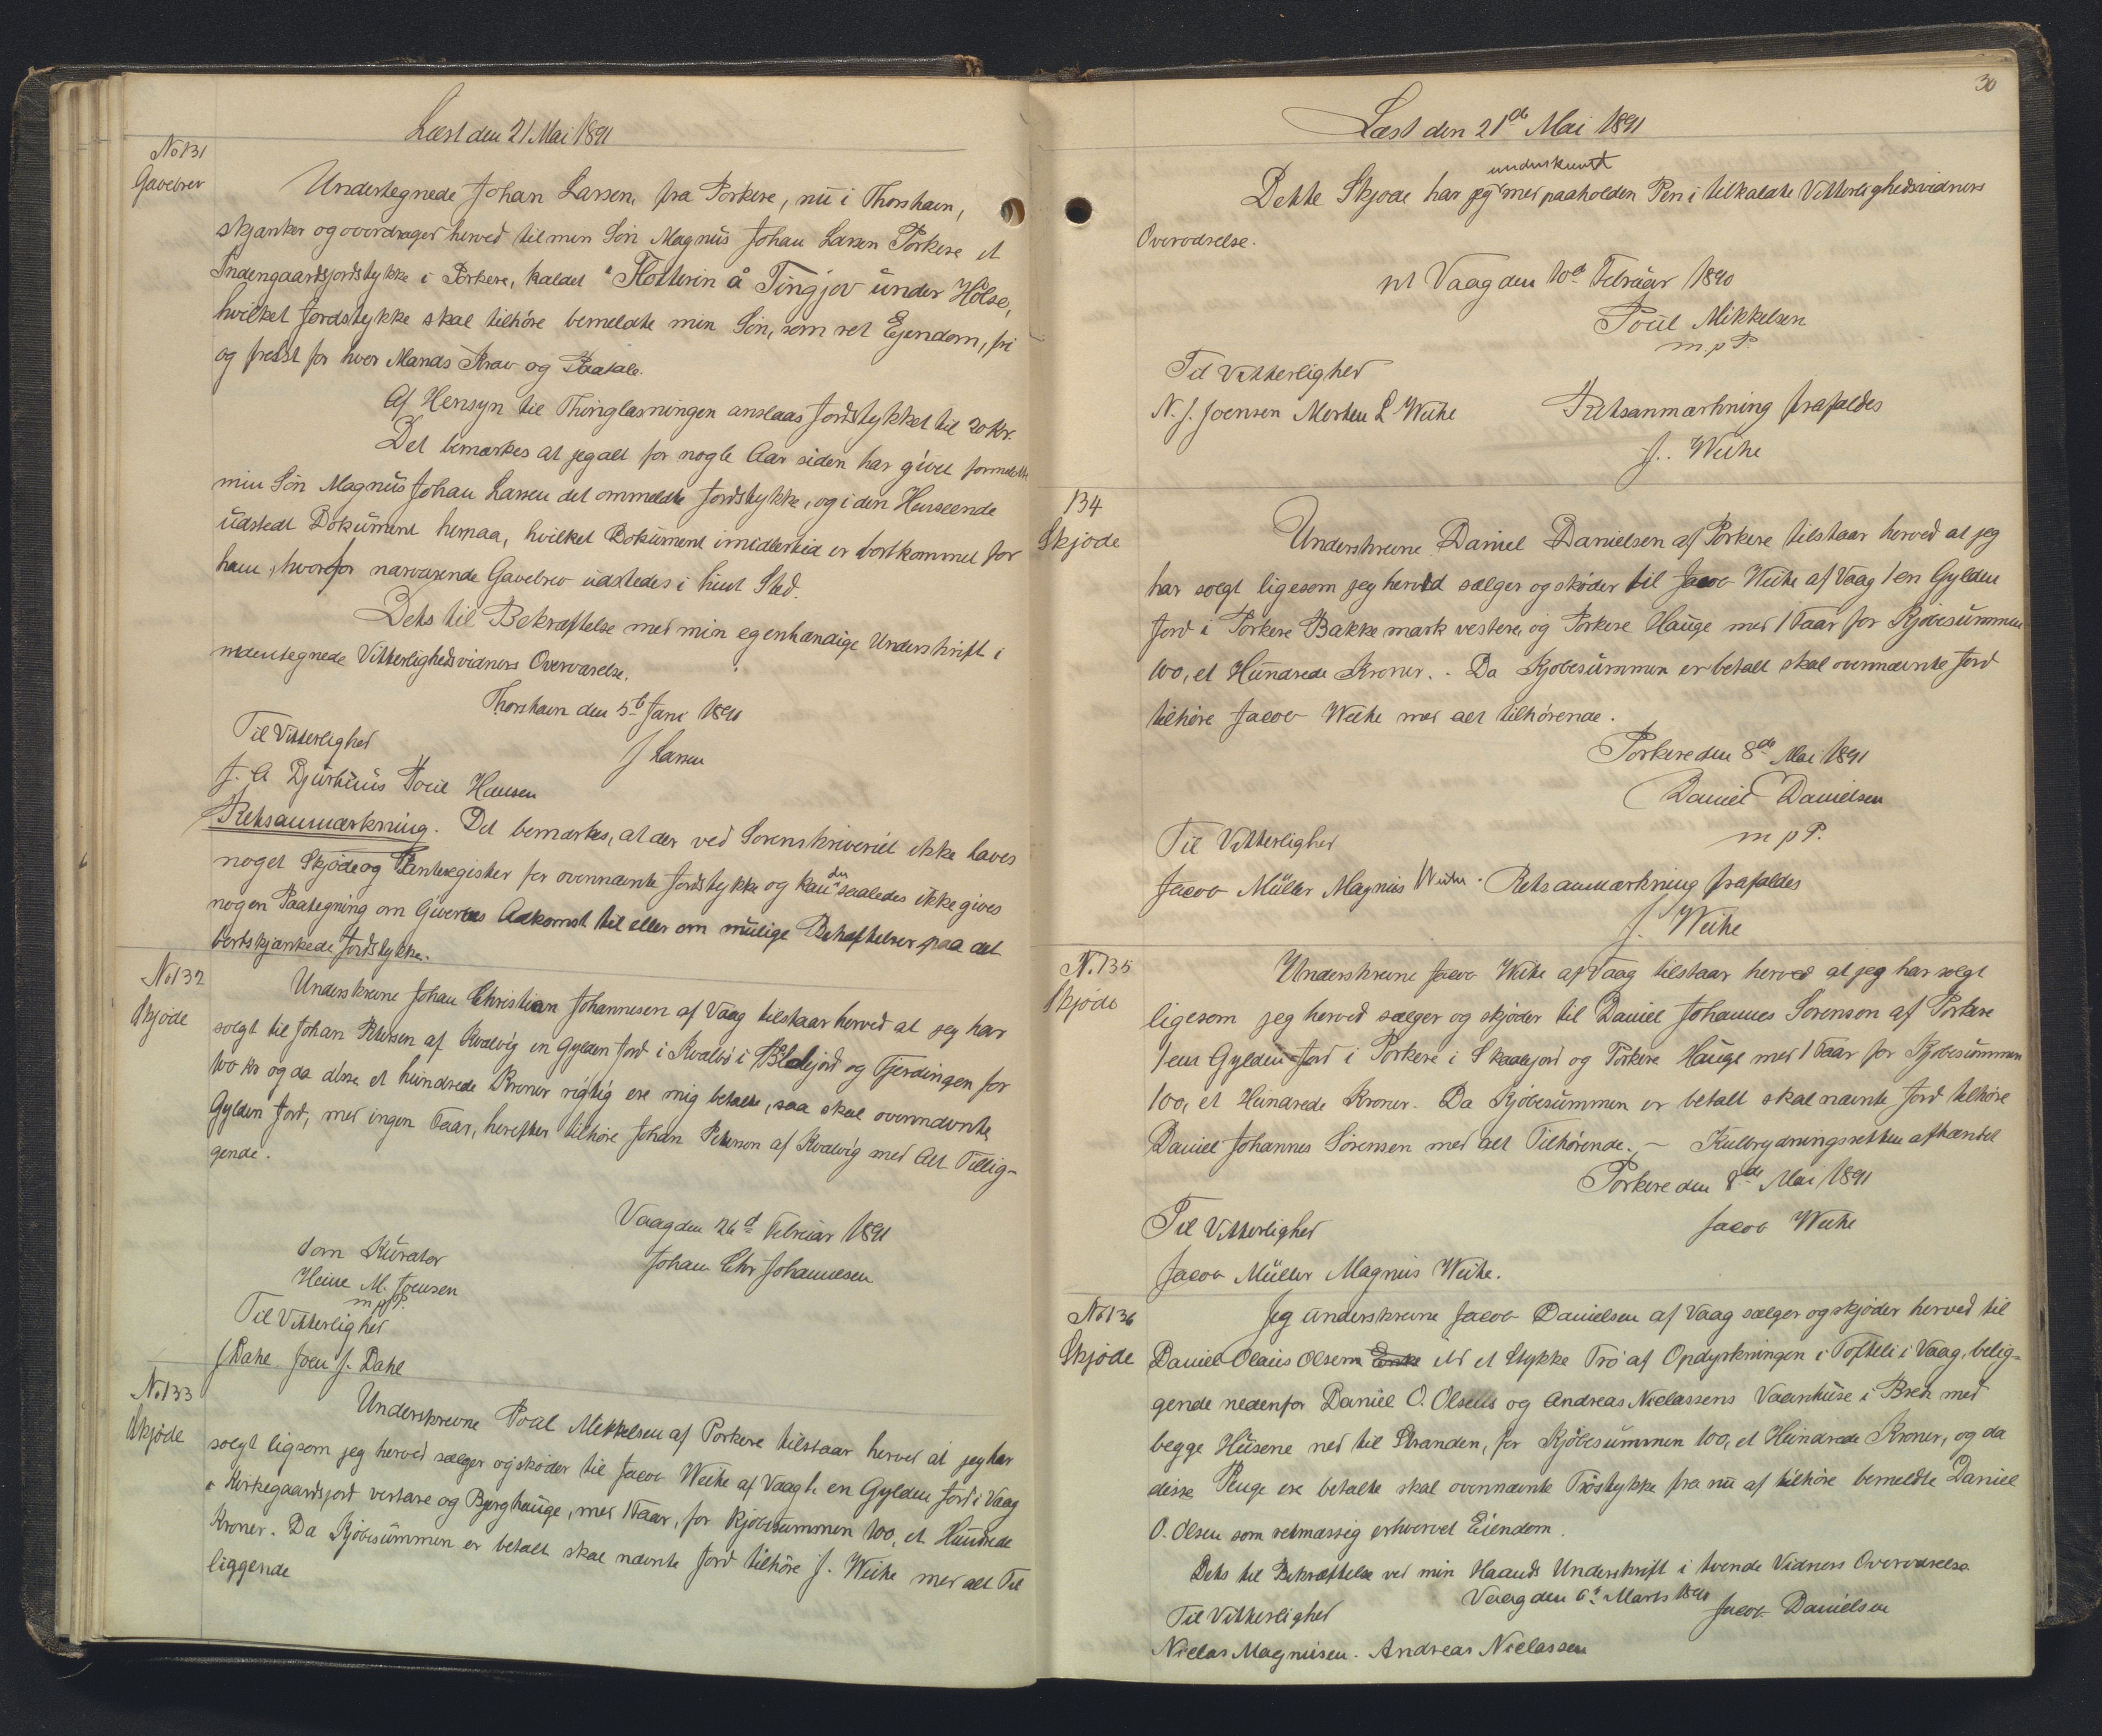 Læst den 21 Mai 1891
No 131
Gavebrev
Undertegnede Johan Larsen, fra Porkere, nu i Thorshavn,
skjænker og overdrager herved til min Søn Magnus Johan Larsen Porkere et
Indengaardsjordstykke i Porkere, kaldet "Flotterin å Tingjov under Hølse,
hvilket Jordstykke skal tilhøre bemeldte min Søn, som ret Ejendom, fri
og frelst for hver Mands Krav og Paatale.
Af Hensyn til Thinglæsningen anslaas Jordstykket til 20 Kr.
Det bemærkes at jeg alt for nogle Aar siden har givet formeldte
min Søn Magnus Johan Larsen det ommeldte Jordstykke, og i den Henseende
udstedt Dokument herpaa, hvilket Dokument imidlertid er bortkommet for
ham, hvorfor nærværende Gavebrev udstedes i hint Sted.
Dets til Bekræftelse med min egenhændige Underskrift i
nedentegnede Vitterlighedsvidners Overværelse.
Thorshavn den 5t Jani 1891
Til Vitterlighed
J Larsen
J. A Djurhuus Poul Hansen
Retsanmærkning. Det bemærkes, at der ved Sorenskriveriet ikke haves
noget Skjøde og Panteregister for ovennævnte Jordstykke og kan der saaledes ikke gives
nogen Paategning om Giverens Adkomst til eller om mulige Behæftelser paa det
bortskjænkede Jordstykke.
No 132
Skjøde
Underskrevne Johan Christian Johannesen af Vaag tilstaar herved at jeg har
solgt til Johan Petersen af Kvalvig en Gylden Jord i Kvalbø i Blakjord og Fjerdingen for
100 Kr og da disse et hundrede Kroner rigtig ere mig betalte, saa skal ovennævnte
Gylden Jord, med ingen Faar, herefter tilhøre Johan Peterson af Kvalvig med Alt Tillig-
gende.
Vaag den 26d Februar 1891
Johan Chr Johannesen
som Kurator
Heine M. Joensen
m p P.
Til Vitterlighed
J Dahl Joen J. Dahl
No 133
Skjøde
Underskrevne Poul Mikkelsen af Porkere tilstaar herved at jeg har
solgt ligesom jeg herved sælger og skøder til Jacob Weihe af Vaag 1 en Gylden Jord i Vaag
i Kirkegaardsjord vestare og Bjerghauge, med 1 Faar, for Kjøbesummen 100, et Hundrede
Kroner. Da Kjøbesummen er betalt skal nævnte Jord tilhøre J. Weihe med alt Til
liggende
30
Læst den 21de Mai 1891
Dette Skjøde har jeg underskrevet med paaholden Pen i tilkaldte Vitterlighedsvidners
Overværelse.
pt Vaag den 10d Februar 1890
Poul Mikkelsen
m p P
Til Vitterlighed
N. J. Joensen Morten L Weihe
Retsanmærkning frafaldes
J. Weihe
134
Skjøde
Underskrevne Daniel Danielsen af Porkere tilstaar herved at jeg
har solgt ligesom jeg herved sælger og skøder til Jacob Weihe af Vaag 1 en Gylden
Jord i Porkere Bakkemark vestere og Porkere Hauge med 1 Faar for Kjøbesummen
100, et Hundrede Kroner. Da Kjøbesummen er betalt skal ovennævnte Jord
tilhøre Jacob Weihe med alt tilhørende.
Porkere den 8de Mai 1891
Daniel Danielsen
m p P.
Til Vitterlighed
Jacob Müller Magnus Weihe. Retsanmærkning frafaldes
J. Weihe
No. 135
Skjøde
Underskrevne Jacob Weihe af Vaag tilstaar herved at jeg har solgt
ligesom jeg herved sælger og skjøder til Daniel Johannes Sørenson af Porkere
1 een Gylden Jord i Porkere i Skaalejord og Porkere Hauge med 1 Faar for Kjøbesummen
100, et Hundrede Kroner. Da Kjøbesummen er betalt skal nævnte Jord tilhøre
Daniel Johannes Sørensen med alt Tilhørende. – Kulbrydningsretten afhændet
Porkere den 8de Mai 1891
Jacob Weihe
Til Vitterlighed
Jacob Müller Magnus Weihe.
No 136
Skjøde
Jeg underskrevne Jacob Danielsen af Vaag sælger og skjøder herved til
Daniel Olaus Olsens Enke et Stykke Trø af Opdyrkningen i Tofteli i Vaag, belig-
gende nedenfor Daniel O. Olsens og Andreas Niclassens Vaanhuse i Bredde med
begge Husene ned til Stranden, for Kjøbesummen 100, et Hundrede Kroner, og da
disse Penge ere betalte skal ovennævnte Trøstykke fra nu af tilhøre bemeldte Daniel
O. Olsen som retmæssig erhvervet Eiendom.
Dets til Bekræftelse ved min Haands Underskrift i tvende Vidners Overværelse
Vaag den 6t Marts 1891
Jacob Danielsen
Til Vitterlighed
Niclas Magnusen. Andreas Niclassen